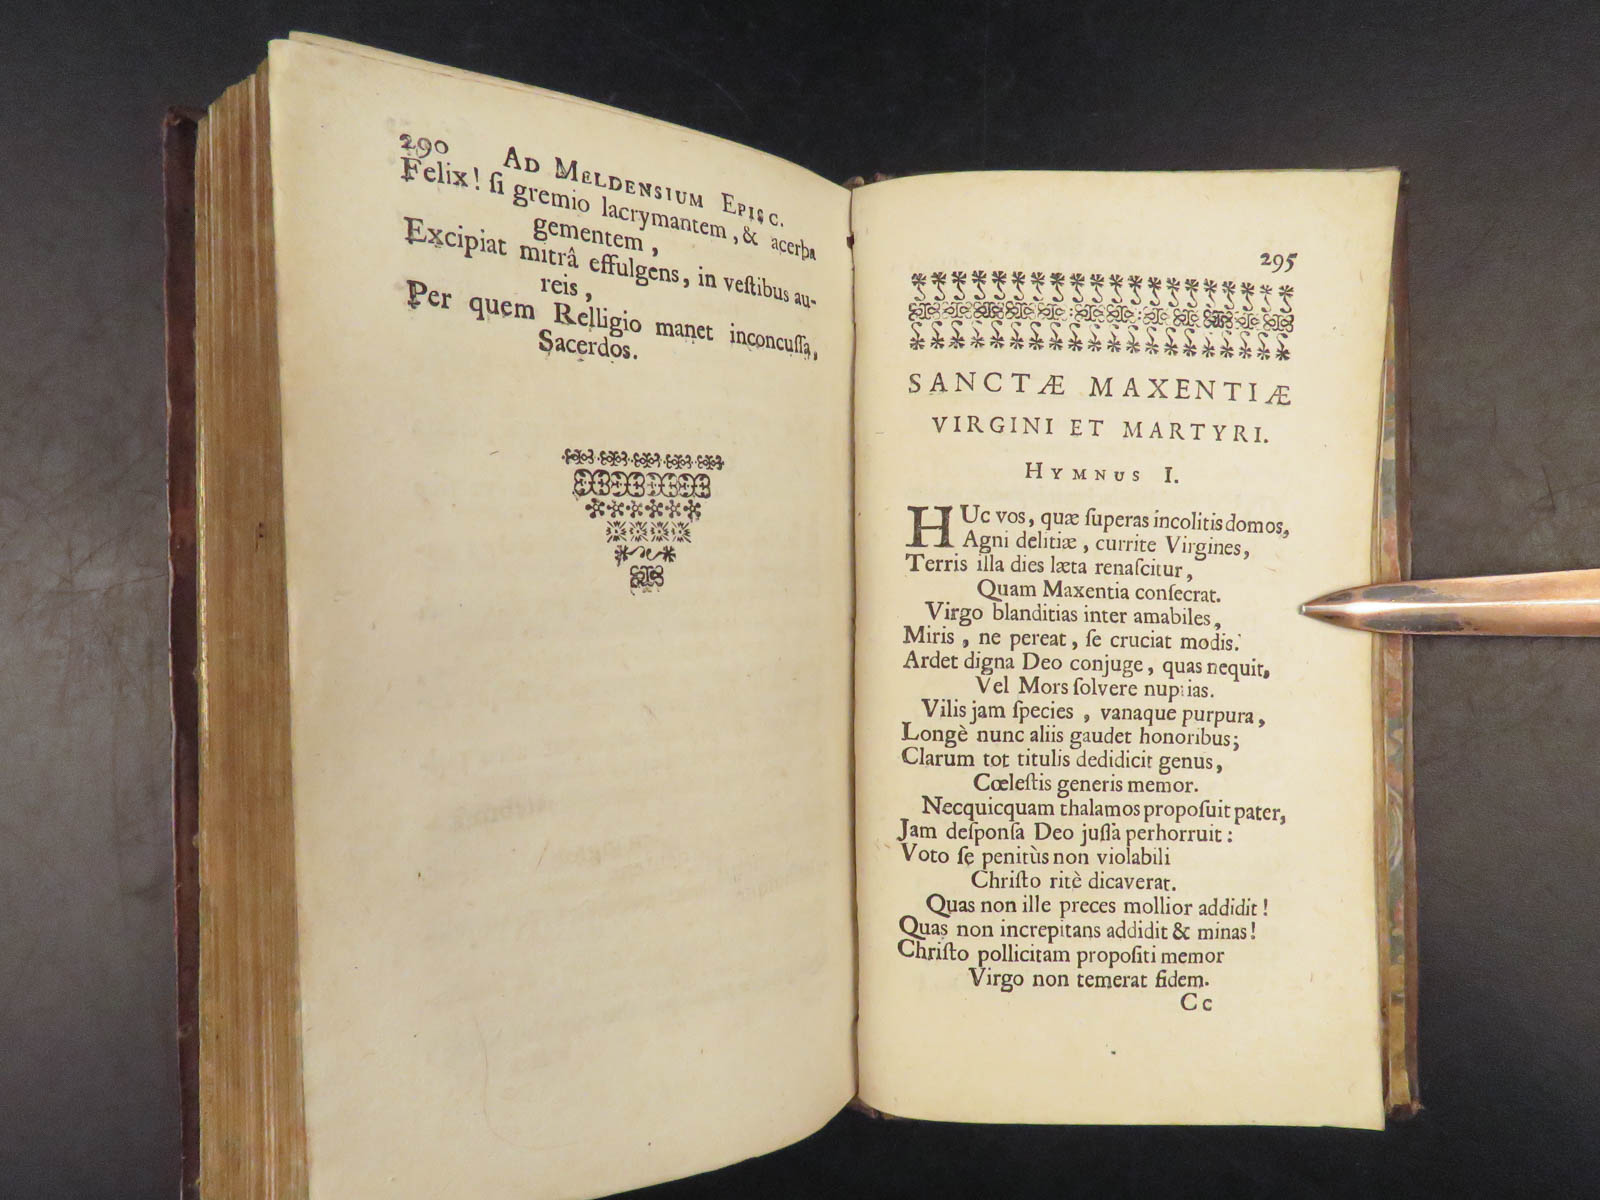 290 AD MELDENSIUM EPISC.
Felix! ſi gremio lacrymantem, & acerba
gementem,
Excipiat mitrâ effulgens, in veſtibus au-
reis,
Per quem Relligio manet inconcuſſa,
Sacerdos.
295
SANCTÆ MAXENTIÆ
VIRGINI ET MARTYRI.
HYMNUS I.
HUc vos, quæ ſuperas incolitis domos,
Agni delitiæ, currite Virgines,
Terris illa dies læta renaſcitur,
Quam Maxentia conſecrat.
Virgo blanditias inter amabiles,
Miris, ne pereat, ſe cruciat modis.
Ardet digna Deo conjuge, quas nequit,
Vel Mors ſolvere nuptias.
Vilis jam ſpecies, vanaque purpura,
Longè nunc aliis gaudet honoribus;
Clarum tot titulis dedidicit genus,
Cœleſtis generis memor.
Necquicquam thalamos propoſuit pater,
Jam deſponſa Deo juſſa perhorruit:
Voto ſe penitùs non violabili
Chriſto ritè dicaverat.
Quas non ille preces mollior addidit!
Quas non increpitans addidit & minas!
Chriſto pollicitam propoſiti memor
Virgo non temerat fidem.
Cc